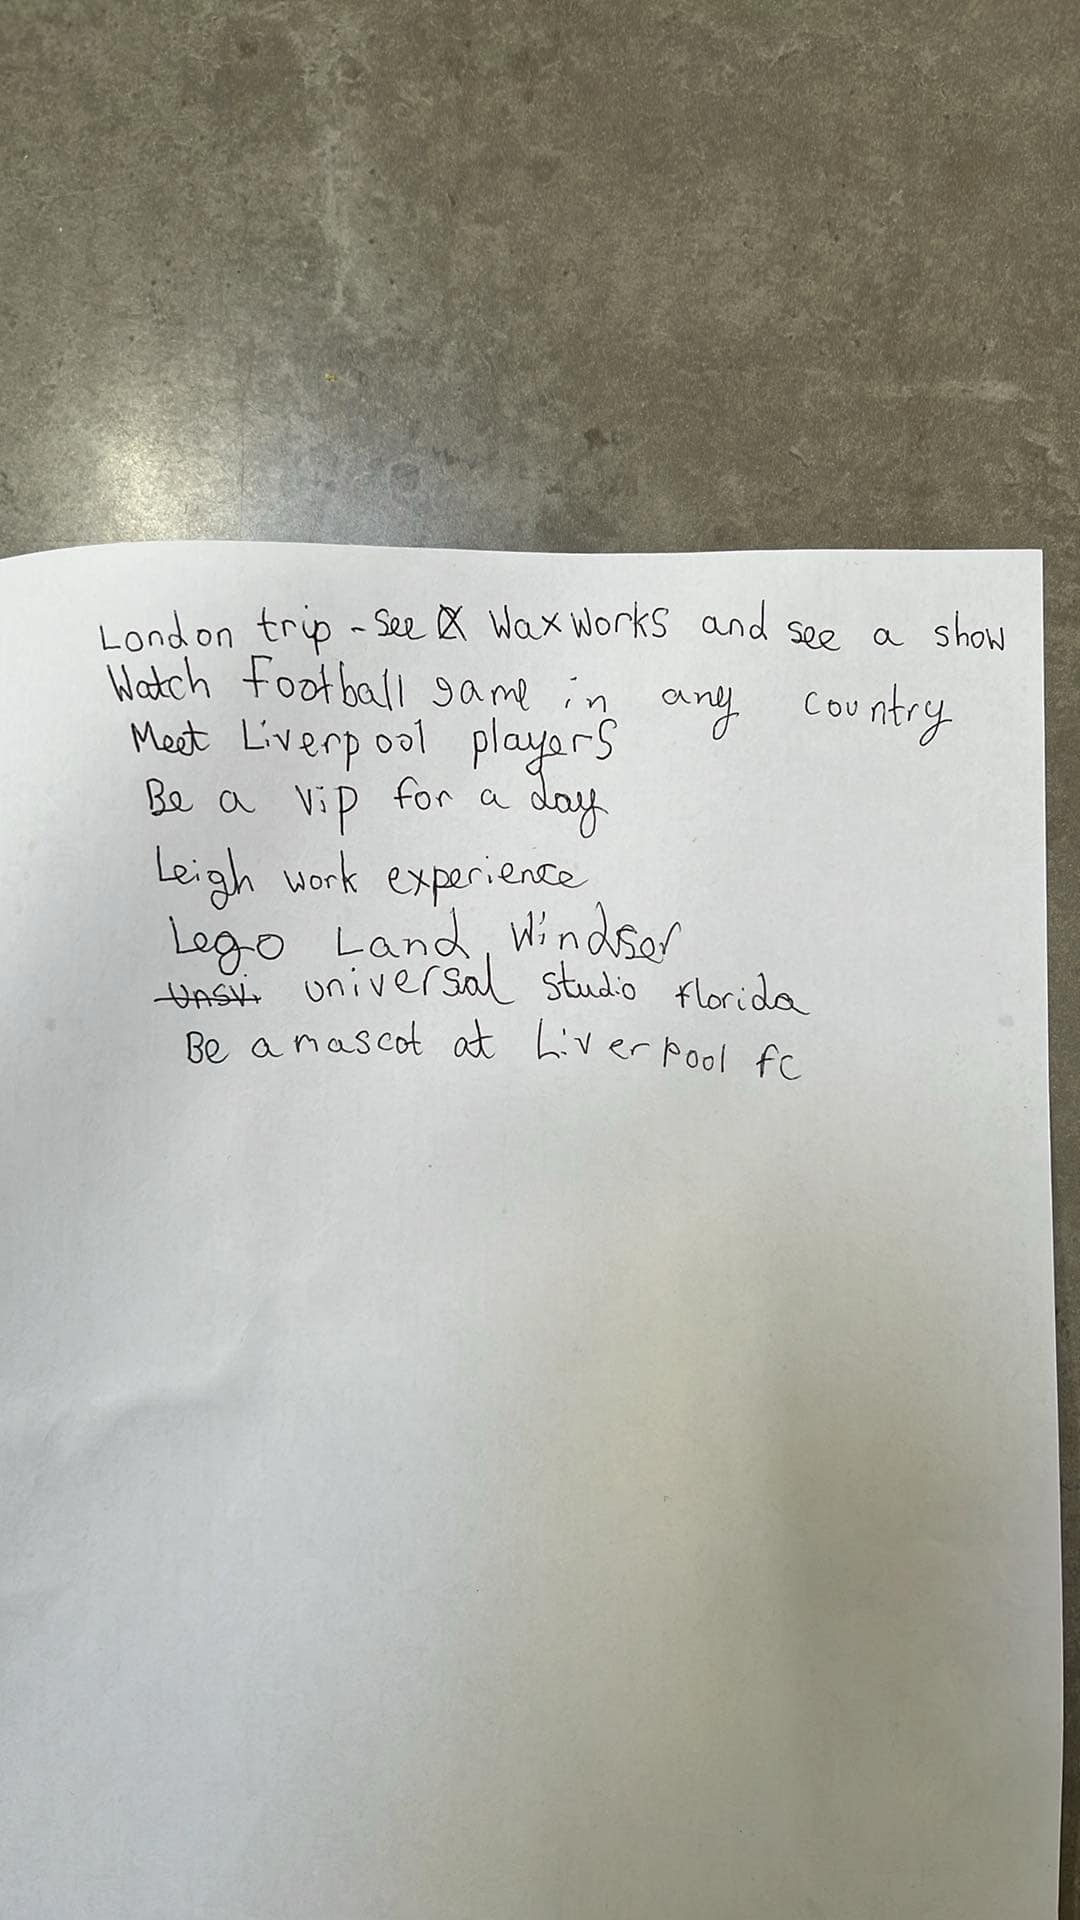 London trip - See waxworks and see a show
Watch football game in any country
Meet Liverpool players
Be a Vip for a day
Leigh work experience
Lego Land Windsor
Unsvi universal studio florida
Be a mascot at Liverpool fc